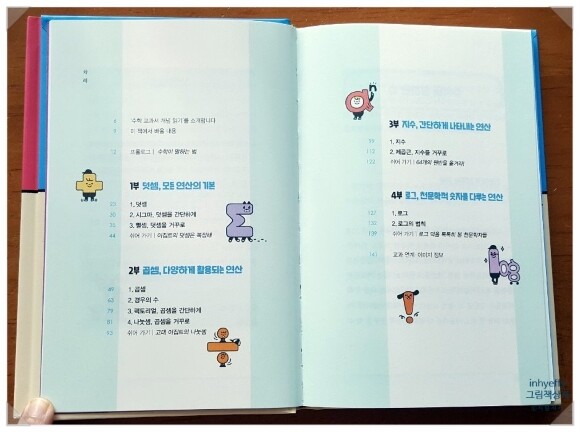 차
례
4 '수학 교과서 개념 읽기'를 소개합니다
9 이 책에서 배울 내용
12 프롤로그 | 수학이 말하는 법
1부 덧셈, 모든 연산의 기본
23 1. 덧셈
30 2. 시그마, 덧셈을 간단하게
35 3. 뺄셈, 덧셈을 거꾸로
44 쉬어 가기 | 이집트의 덧셈은 복잡해!
2부 곱셈, 다양하게 활용되는 연산
49 1. 곱셈
63 2. 경우의 수
79 3. 팩토리얼, 곱셈을 간단하게
81 4. 나눗셈, 곱셈을 거꾸로
쉬어 가기 | 고대 이집트의 나눗셈
Σ
3부 지수, 간단하게 나타내는 연산
99 1. 지수
112 2. 제곱근, 지수를 거꾸로
122 쉬어 가기 | 64개의 원판을 옮겨라!
4부 로그, 천문학적 숫자를 다루는 연산
127 1. 로그
132 2. 로그의 법칙
139 쉬어 가기 | 로그 덕을 톡톡히 본 천문학자들
141 교과 연계·이미지 정보
log
!
inhyeff
그림책상